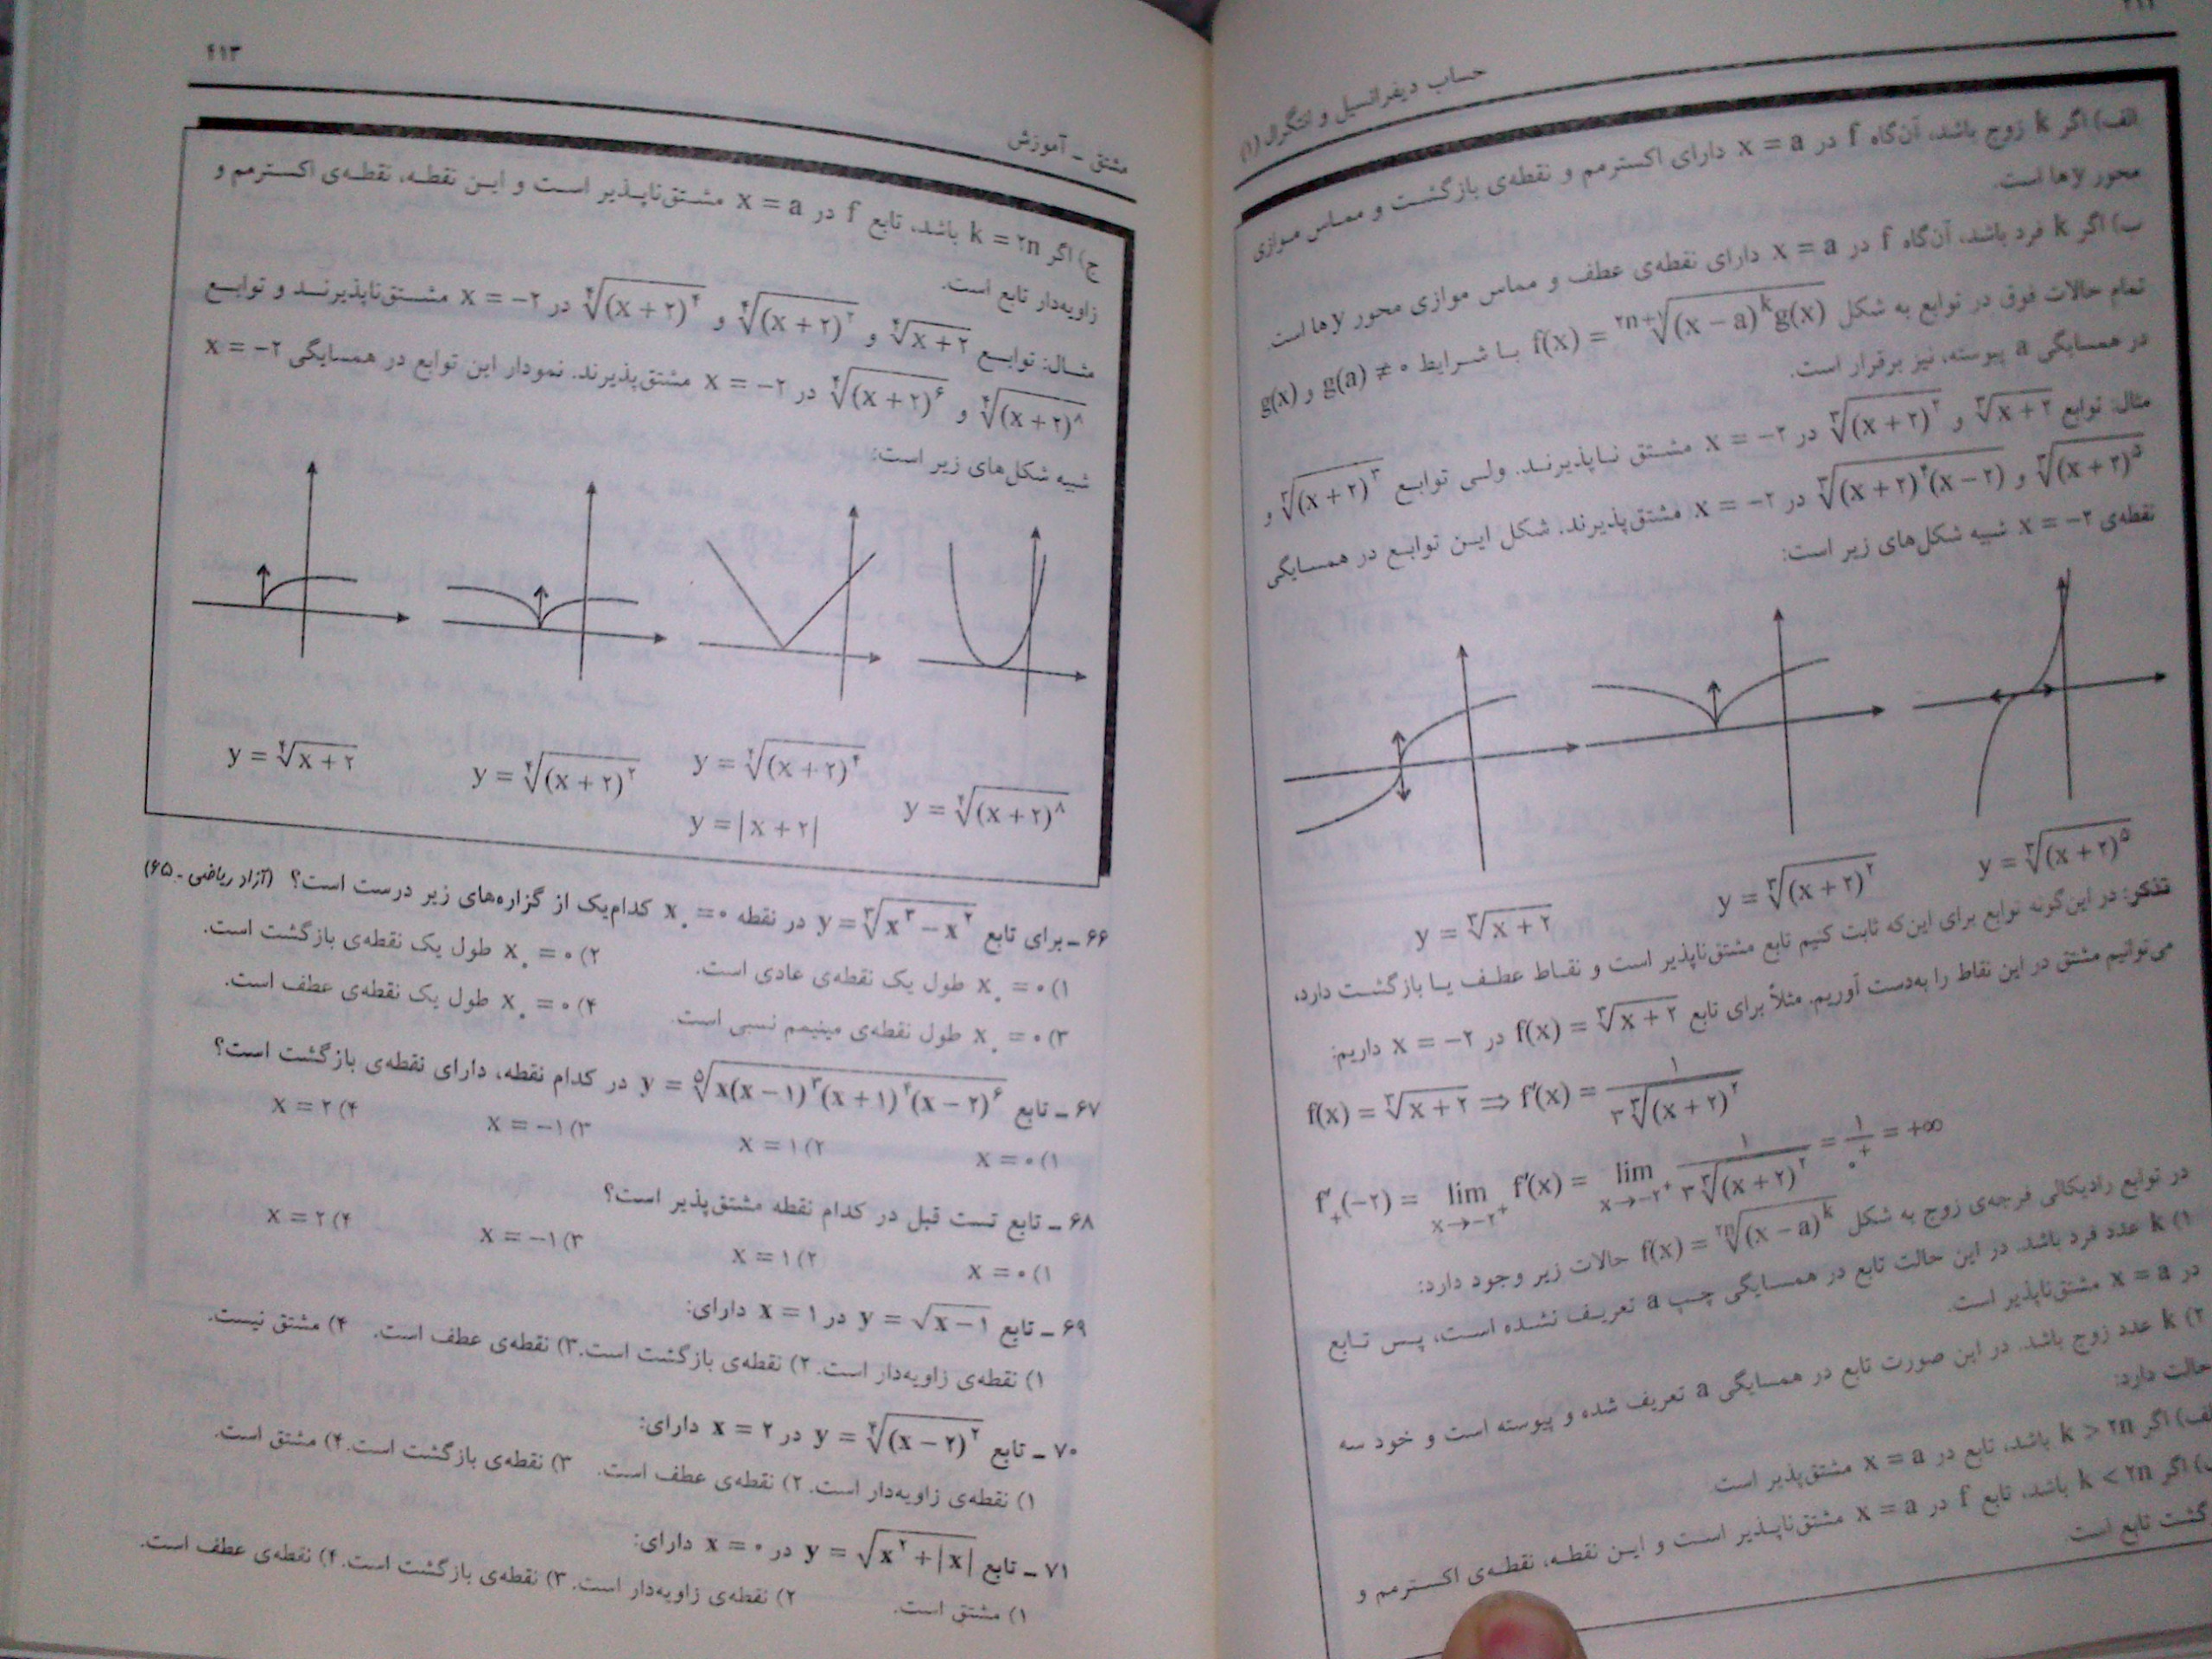 حساب دیفرانسیل و انتگرال (۱)
الف) اگر k زوج باشد، آن‌گاه f در x = a دارای اکسترمم و نقطه‌ی بازگشت و مماس موازی
محور yها است.
ب) اگر k فرد باشد، آن‌گاه f در x = a دارای نقطه‌ی عطف و مماس موازی محور yها است.
تمام حالات فوق در توابع به شکل f(x) = ²ⁿ⁺¹√((x − a)^k g(x)) با شرایط g(a) ≠ ۰ و g(x)
در همسایگی a پیوسته، نیز برقرار است.
مثال: توابع ∛(x + ۲) و ∛((x + ۲)^۲) در x = −۲ مشتق ناپذیرند. ولی توابع ∛((x + ۲)^۳) و
∛((x + ۲)^۵) و ∛((x + ۲)^۴(x − ۲)) در x = −۲ مشتق‌پذیرند. شکل این توابع در همسایگی
نقطه‌ی x = −۲ شبیه شکل‌های زیر است:
y = ∛((x + ۲)^۵)
y = ∛((x + ۲)^۲)
y = ∛(x + ۲)
تذکر: در این‌گونه توابع برای این‌که ثابت کنیم تابع مشتق‌ناپذیر است و نقاط عطف یا بازگشت دارد،
می‌توانیم مشتق در این نقاط را به‌دست آوریم. مثلاً برای تابع f(x) = ∛(x + ۲) در x = −۲ داریم:
f(x) = ∛(x + ۲) ⇒ f′(x) = ۱/(۳∛((x + ۲)^۲))
f′₊(−۲) = lim x→−۲⁺ f′(x) = lim x→−۲⁺ ۱/(۳∛((x + ۲)^۲)) = ۱/۰⁺ = +∞
در توابع رادیکالی فرجه‌ی زوج به شکل f(x) = ²ⁿ√((x − a)^k) حالات زیر وجود دارد:
۱) k عدد فرد باشد. در این حالت تابع در همسایگی چپ a تعریف نشده است، پس تابع
در x = a مشتق‌ناپذیر است.
۲) k عدد زوج باشد. در این صورت تابع در همسایگی a تعریف شده و پیوسته است و خود سه
حالت دارد:
الف) اگر k > ۲n باشد، تابع در x = a مشتق‌پذیر است.
ب) اگر k < ۲n باشد، تابع f در x = a مشتق‌ناپذیر است و این نقطه، نقطه‌ی اکسترمم و
گشت تابع است
۴۱۳
مشتق ـ آموزش
ج) اگر k = ۲n باشد، تابع f در x = a مشتق‌ناپذیر است و این نقطه، نقطه‌ی اکسترمم و
زاویه‌دار تابع است.
مثال: توابع ∜(x + ۲) و ∜((x + ۲)^۲) و ∜((x + ۲)^۴) در x = −۲ مشتق‌ناپذیرند و توابع
∜((x + ۲)^۸) و ∜((x + ۲)^۶) در x = −۲ مشتق‌پذیرند. نمودار این توابع در همسایگی x = −۲
شبیه شکل‌های زیر است:
y = ∜((x + ۲)^۸)
y = ∜((x + ۲)^۴)
y = |x + ۲|
y = ∜((x + ۲)^۲)
y = ∜(x + ۲)
۶۶ ـ برای تابع y = ∛(x^۳ − x^۲) در نقطه x₀ = ۰ کدام‌یک از گزاره‌های زیر درست است؟ (آزاد ریاضی ـ ۶۵)
۱) x₀ = ۰ طول یک نقطه‌ی عادی است. ۲) x₀ = ۰ طول یک نقطه‌ی بازگشت است.
۳) x₀ = ۰ طول نقطه‌ی مینیمم نسبی است. ۴) x₀ = ۰ طول یک نقطه‌ی عطف است.
۶۷ ـ تابع y = ⁵√(x(x − ۱)^۳(x + ۱)^۲(x − ۲)^۶) در کدام نقطه، دارای نقطه‌ی بازگشت است؟
۱) x = ۰ ۲) x = ۱ ۳) x = −۱ ۴) x = ۲
۶۸ ـ تابع تست قبل در کدام نقطه مشتق‌پذیر است؟
۱) x = ۰ ۲) x = ۱ ۳) x = −۱ ۴) x = ۲
۶۹ ـ تابع y = √(x − ۱) در x = ۱ دارای:
۱) نقطه‌ی زاویه‌دار است. ۲) نقطه‌ی بازگشت است. ۳) نقطه‌ی عطف است. ۴) مشتق نیست.
۷۰ ـ تابع y = ∜((x − ۲)^۲) در x = ۲ دارای:
۱) نقطه‌ی زاویه‌دار است. ۲) نقطه‌ی عطف است. ۳) نقطه‌ی بازگشت است. ۴) مشتق است.
۷۱ ـ تابع y = √(x^۲ + |x|) در x = ۰ دارای:
۱) مشتق است. ۲) نقطه‌ی زاویه‌دار است. ۳) نقطه‌ی بازگشت است. ۴) نقطه‌ی عطف است.